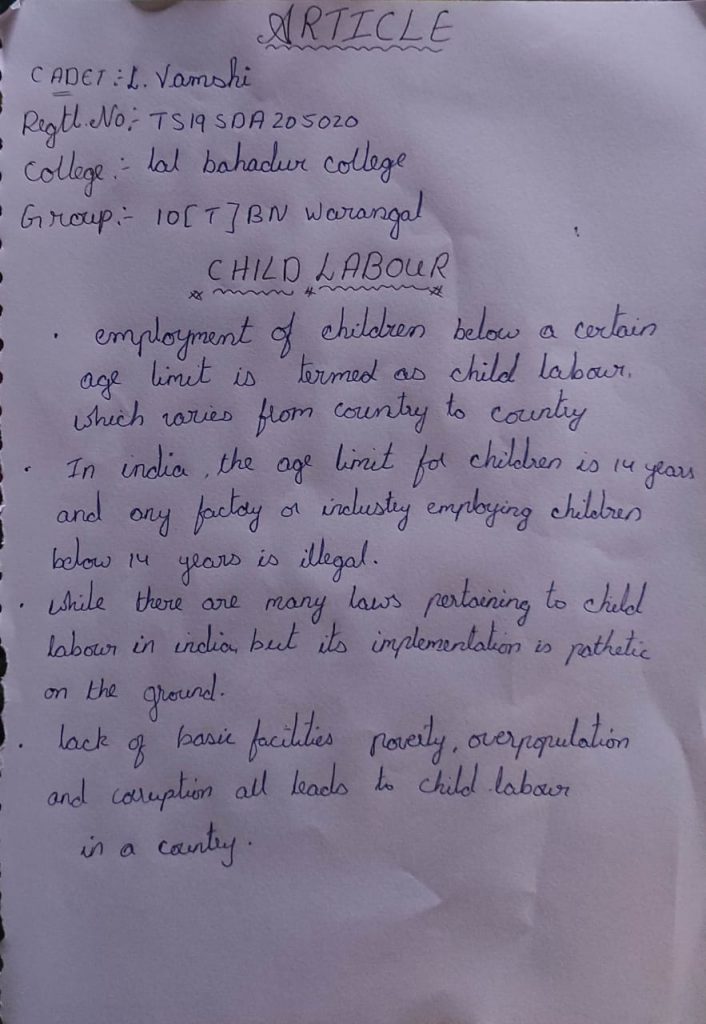 ARTICLE
CADET :- L. Vamshi
Regtl. No :- TS19 SDA 205020
College :- lal bahadur college
Group :- 10[T]BN Warangal
CHILD LABOUR
• employment of children below a certain
age limit is termed as child labour.
which varies from country to country
• In india, the age limit for children is 14 years
and any factory or industry employing children
below 14 years is illegal.
• while there are many laws pertaining to child
labour in india, but its implementation is pathetic
on the ground.
• lack of basic facilities poverty, overpopulation
and corruption all leads to child labour
in a country.